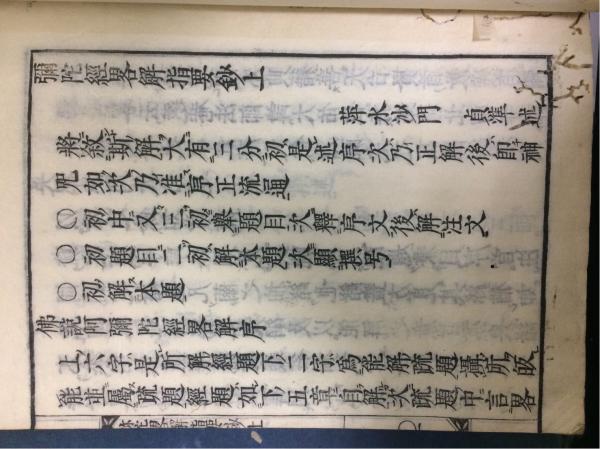 彌陀經畧解指要鈔上
萍水沙門 貞準 述
將欲斯解大有三分初是述序次乃正解後即神
咒如次乃准序正流通
○初中又三初擧題目次釋序文後解注文
○初題目二初解本題次顯譔号
○初解本題
佛說阿彌陀經畧解序
上六字是所解經題下二字爲能解疏題攝所放
能並屬疏題經題如下五章自解次疏題中言畧